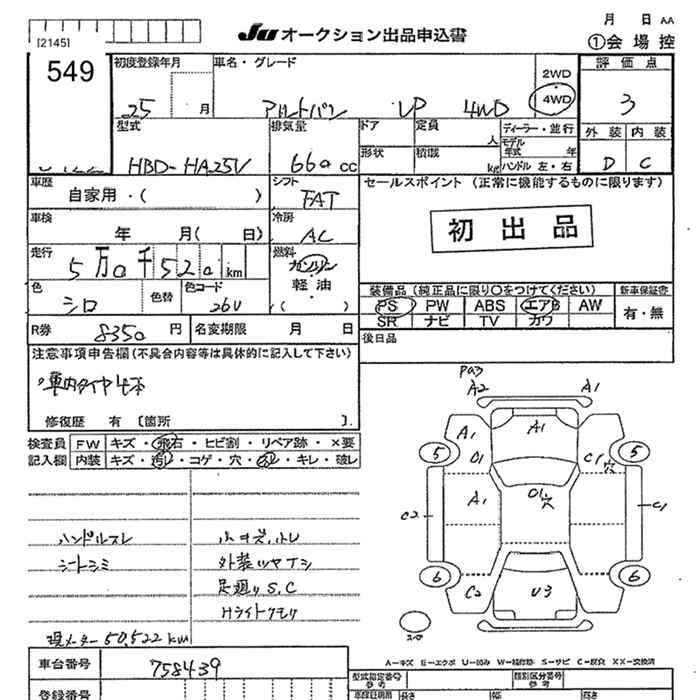 月 日 AA
[2145]
JU オークション出品申込書
①会場控
549
初度登録年月
25 月
車名・グレード
アルトバン VP 4WD
2WD
4WD
評価点
3
型式
HBD-HA25V
排気量
660 cc
ドア
定員 人
形状
積載 kg
ディーラー・並行
モデル年式 年
ハンドル 左・右
外装 内装
D C
車歴
自家用・( )
シフト
FAT
セールスポイント (正常に機能するものに限ります)
初出品
車検
年 月( 日)
冷房
AC
走行
5万0千520km
燃料
ガソリン
軽油
( )
色
シロ
色替
色コード
26U
装備品 (純正品に限り○をつけてください)
PS PW ABS エアB AW
SR ナビ TV カワ
新車保証書
有・無
R券 8350 円
名変期限 月 日
後日品
注意事項申告欄(不具合内容等は具体的に記入して下さい)
車内タイヤ4本
修復歴 有 [箇所 ].
検査員記入欄
FW キズ・飛石・ヒビ割・リペア跡・×要
内装 キズ・汚れ・コゲ・穴・・キレ・破レ
ハンドルスレ
シートシミ
小キズ、凹
外装ツヤナシ
足廻りS.C
Hライトクモリ
現メーター 50,522 km
車台番号 758439
登録番号
A2 A1
A1 A1
5 5
01 C1 穴
A1 01 穴
C2 C1
6 6
C2 U3
スペア
A-キズ E-エクボ U-凹み W-補修跡 S-サビ C-腐食 XX-交換済
型式指定番号
参考
類別区分番号
参考
車体証明用 長さ 幅 高さ